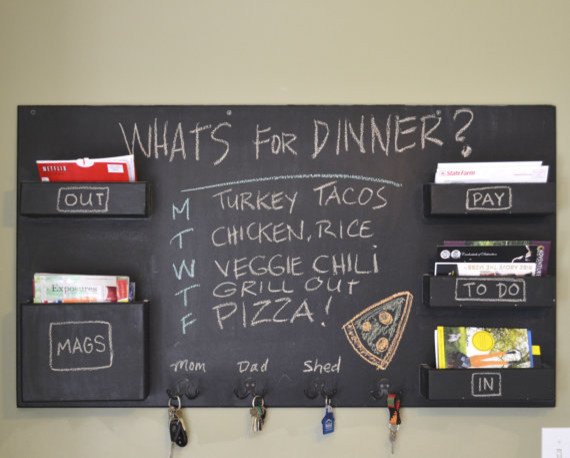 WHATS FOR DINNER?
NETFLIX
OUT
StateFarm
PAY
M TURKEY TACOS
T CHICKEN, RICE
W VEGGIE CHILI
T GRILL OUT
F PIZZA!
Exposures
MAGS
TO DO
IN
Mom Dad Shed